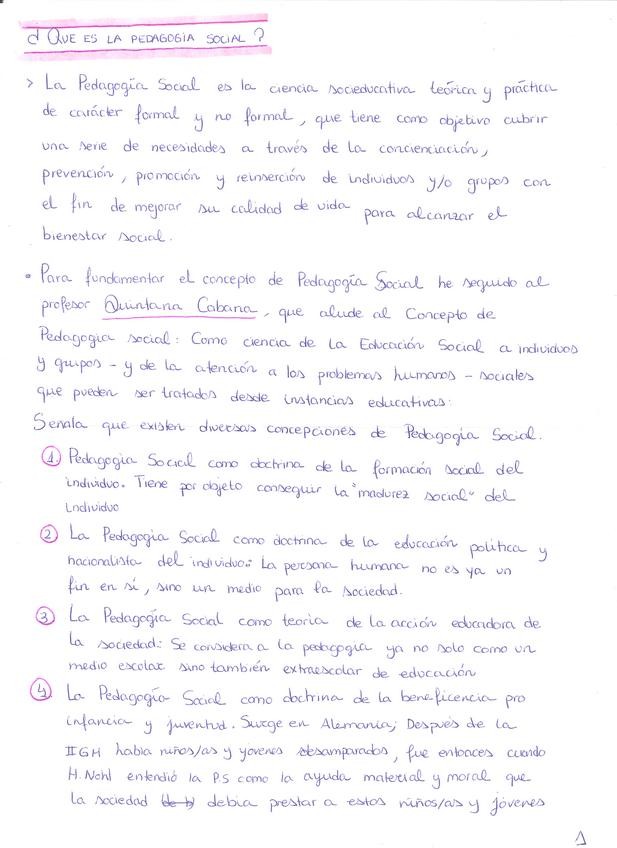 ¿ QUE ES LA PEDAGOGIA SOCIAL ?
> La Pedagogía Social es la ciencia socieducativa teórica y práctica
de carácter formal y no formal, que tiene como objetivo cubrir
una serie de necesidades a través de la concienciación,
prevención, promoción y reinserción de individuos y/o grupos con
el fin de mejorar su calidad de vida para alcanzar el
bienestar social.
• Para fundamentar el concepto de Pedagogía Social he seguido al
profesor Quintana Cabana, que alude al Concepto de
Pedagogia social: Como ciencia de la Educación Social a individuos
y grupos - y de la atención a los problemas humanos - sociales
que pueden ser tratados desde instancias educativas:
Senala que existen diversas concepciones de Pedagogía Social.
1. Pedagogia Social como doctrina de la formación social del
individuo. Tiene por objeto conseguir la "madurez social" del
individuo
2 La Pedagogia Social como doctrina de la educación politica y
nacionalista del individuo: La persona humana no es ya un
fin en sí, sino un medio para la sociedad.
3 La Pedagogía Social como teoria de la acción educadora de
la sociedad: Se considera a la pedagogía ya no solo como un
medio escolar sino también extraescolar de educación
4. La Pedagogía Social como doctrina de la beneficencia pro
infancia y juventud. Surge en Alemania; Después de la
IIGM habia niños/as y yovenes desamparados, fue entonces cuando
H. Nohl entendió la P.S como la ayuda material y moral que
la sociedad debia prestar a estos niños/as y jóvenes
1